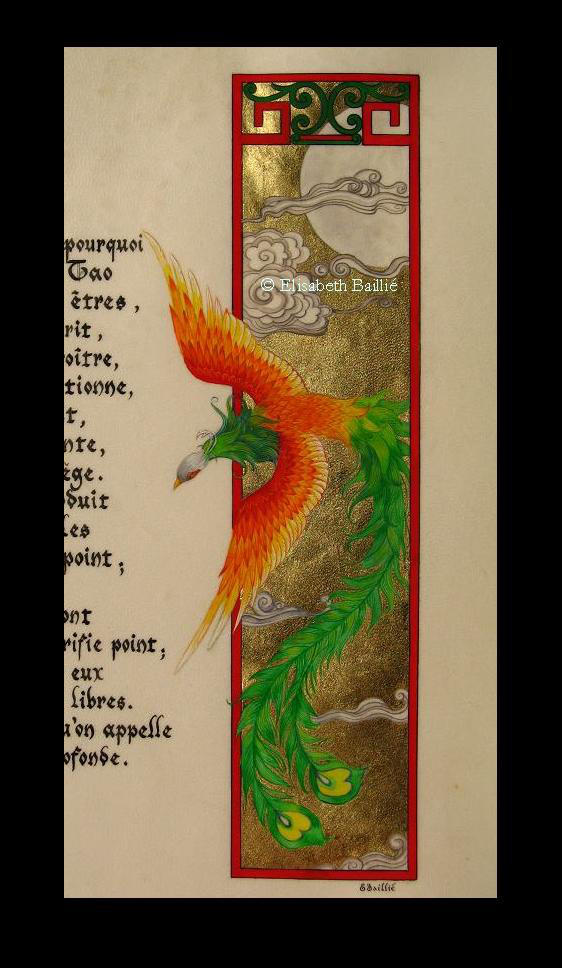 pourquoi
Tao
êtres,
rit,
oître,
tionne,
t,
nte,
ège.
duit
les
point;
ont
rifie point;
eux
libres.
u'on appelle
ofonde.
© Elisabeth Baillié
EBaillié